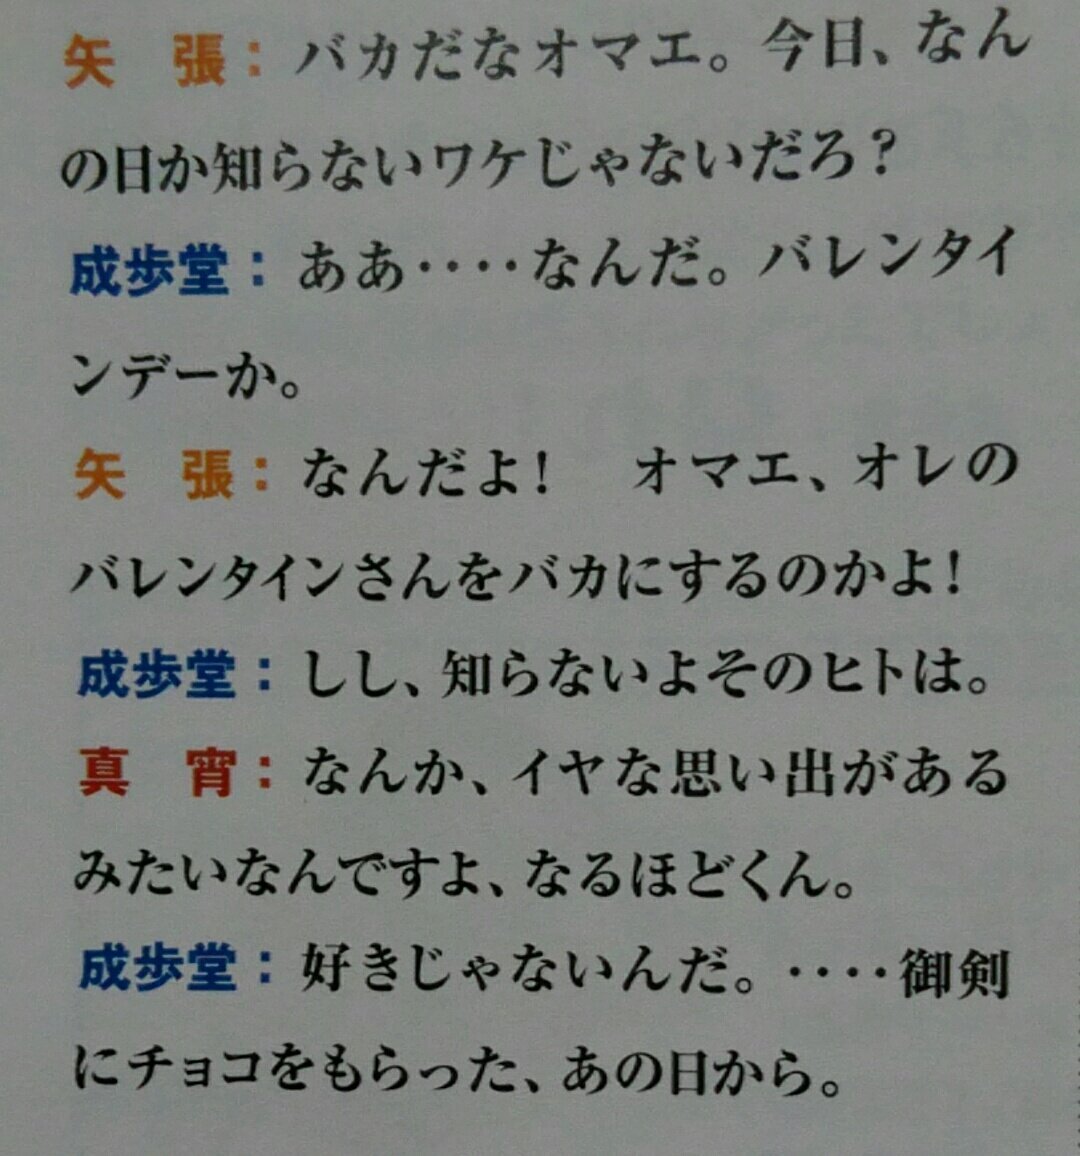 矢　張：バカだなオマエ。今日、なん
の日か知らないワケじゃないだろ？
成歩堂：ああ‥‥なんだ。バレンタイ
ンデーか。
矢　張：なんだよ！　オマエ、オレの
バレンタインさんをバカにするのかよ！
成歩堂：しし、知らないよそのヒトは。
真　宵：なんか、イヤな思い出がある
みたいなんですよ、なるほどくん。
成歩堂：好きじゃないんだ。‥‥御剣
にチョコをもらった、あの日から。